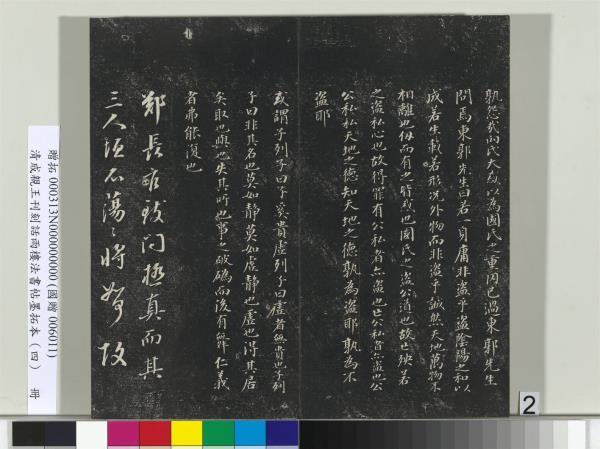 孰怨哉向氏大惑以為國氏之重罔己過東郭先生
問焉東郭先生曰若一身庸非盜乎盜陰陽之和以
成若生載若形況外物而非盜乎誠然天地萬物不
相離也仞而有之皆惑也國氏之盜公道也故亡殃若
之盜私心也故得罪有公私者亦盜也亡公私者亦盜也公
公私私天地之德知天地之德孰為盜耶孰為不
盜耶
或謂子列子曰子奚貴虛列子曰虛者無貴也子列
子曰非其名也莫如靜莫如虛靜也虛也得其居
矣取也與也失其所也事之破䃣而後有舞仁義
者弗能復也
鄭長 問極真而其
三人 不蕩〻將 故
贈拓 000313N000000000 (國贈 006011)
清成親王刊刻話雨樓法書帖墨拓本（四） 冊
2